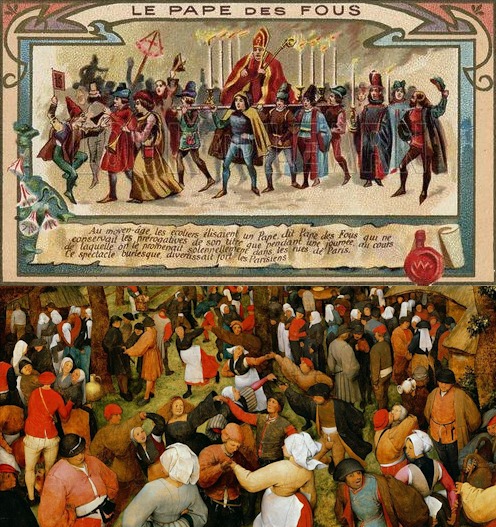 LE PAPE DES FOUS
Au moyen-âge les écoliers élisaient un Pape, dit Pape des Fous qui ne
conservait les prérogatives de son titre que pendant une journée, au cours
de laquelle on le promenait solennellement dans les rues de Paris.
Ce spectacle burlesque, divertissait fort les Parisiens